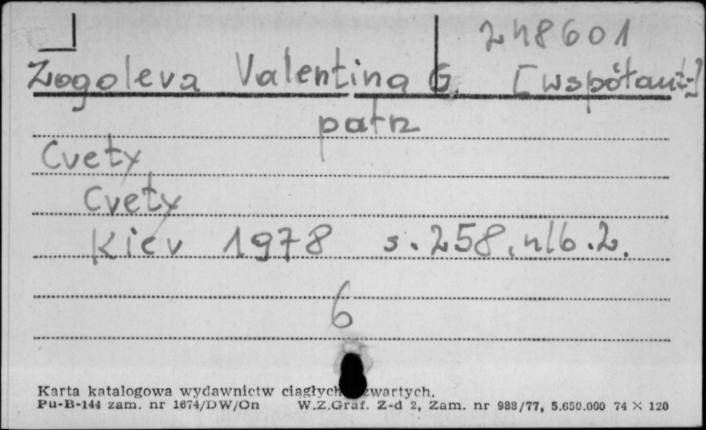 248601
Žogoleva Valentina G. [współaut.]
patrz
Cvety
Cvety
Kiev 1978 s. 258, nlb. 2.
6
Karta katalogowa wydawnictw ciągłych zwartych.
Pu-B-144 zam. nr 1674/DW/On W.Z.Graf. Z-d 2, Zam. nr 988/77, 5.650.000 74 × 120